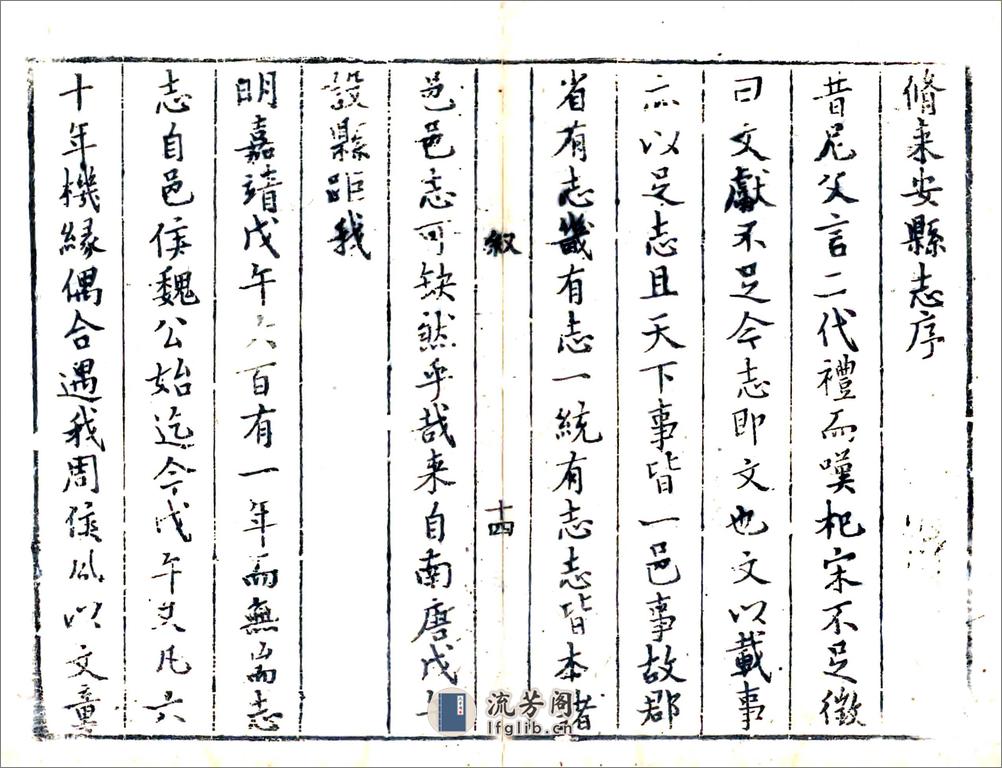 脩来安縣志序
昔尼父言二代禮而嘆杞宋不足徵
曰文獻不足今志即文也文以載事
亦以足志且天下事皆一邑事故郡
省有志畿有志一統有志志皆本諸
叙
十四
邑邑志可缺然乎哉来自南唐戊
設縣距我
明嘉靖戊午六百有一年而無耑志
志自邑侯魏公始迄今戊午又凡六
十年機緣偶合遇我周侯以文章
流芳阁
lfglib.cn